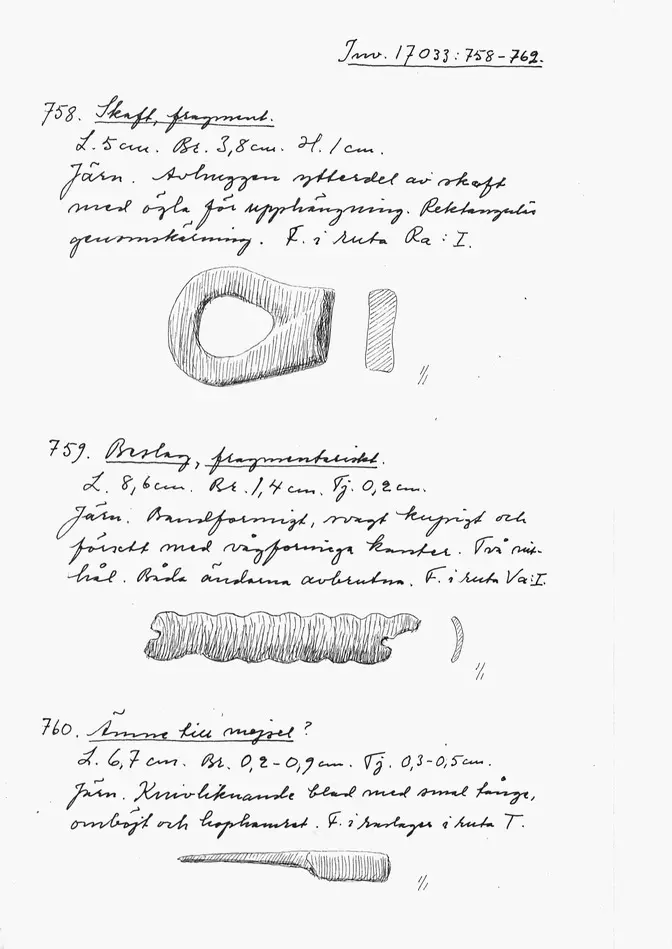 Inv. 17033:758-762.
758. Skaft, fragment.
L. 5 cm. Br. 3,8 cm. H. 1 cm.
Järn. Avhuggen ytterdel av skaft
med ögla för upphängning. Rektangulär
genomskärning. F. i ruta Ra : I.
1/1
759. Beslag, fragmentariskt.
L. 8,6 cm. Br. 1,4 cm. Tj. 0,2 cm.
Järn. Bandformigt, svagt kupigt och
försett med vågformiga kanter. Två nit-
hål. Båda ändarna avbrutna. F. i ruta Va:I.
1/1
760. Ämne till mejsel?
L. 6,7 cm. Br. 0,2-0,9 cm. Tj. 0,3-0,5 cm.
Järn. Knivliknande blad med smal tånge,
omböjt och hophamrat. F. i raslager i ruta T.
1/1